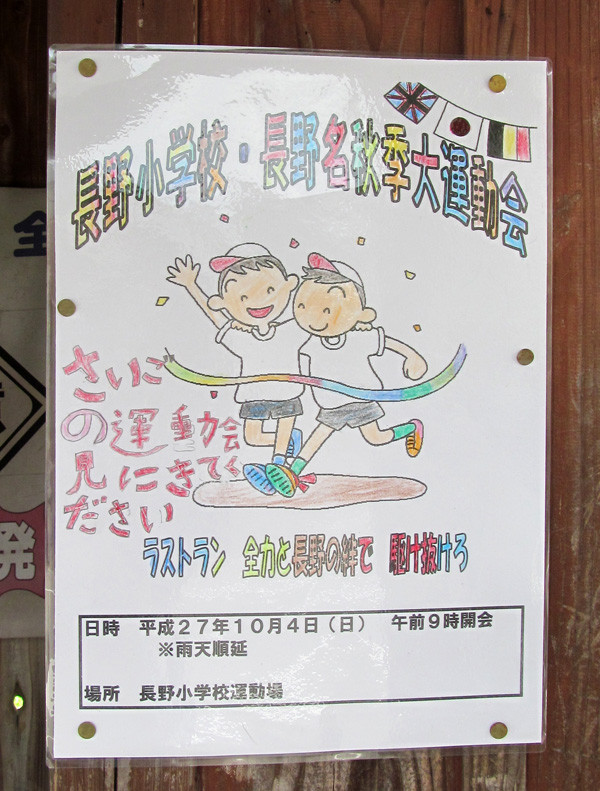 長野小学校・長野名秋季大運動会
さいご
の運動会
見にきてく
ださい
ラストラン 全力と長野の絆で 駆け抜けろ
日時 平成27年10月4日(日) 午前9時開会
※雨天順延
場所 長野小学校運動場
全
発